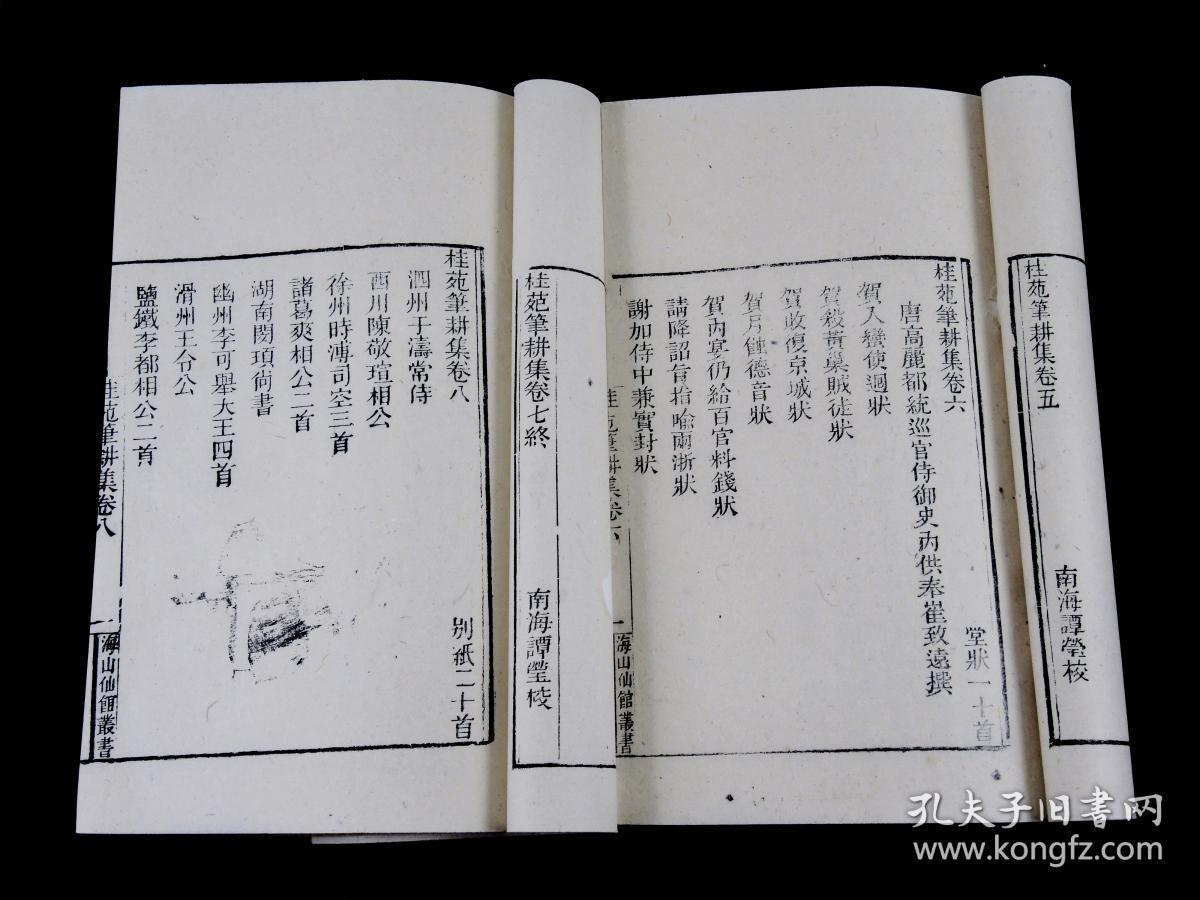 桂苑筆耕集卷五
南海譚瑩校
桂苑筆耕集卷六
唐高麗都統巡官侍御史內供奉崔致遠撰
堂狀一十首
賀入蠻使迴狀
賀殺黃巢賊徒狀
賀收復京城狀
賀月蝕德音狀
賀內宴仍給百官料錢狀
請降詔旨指喻兩浙狀
謝加侍中兼實封狀
桂苑筆耕集卷六
一
海山仙館叢書
桂苑筆耕集卷七終
南海譚瑩校
桂苑筆耕集卷八
別紙二十首
泗州于濤常侍
西川陳敬瑄相公
徐州時溥司空三首
諸葛爽相公二首
湖南閔頊尙書
幽州李可舉大王四首
滑州王令公
鹽鐵李都相公二首
桂苑筆耕集卷八
一
海山仙館叢書
孔夫子旧书网
www.kongfz.com